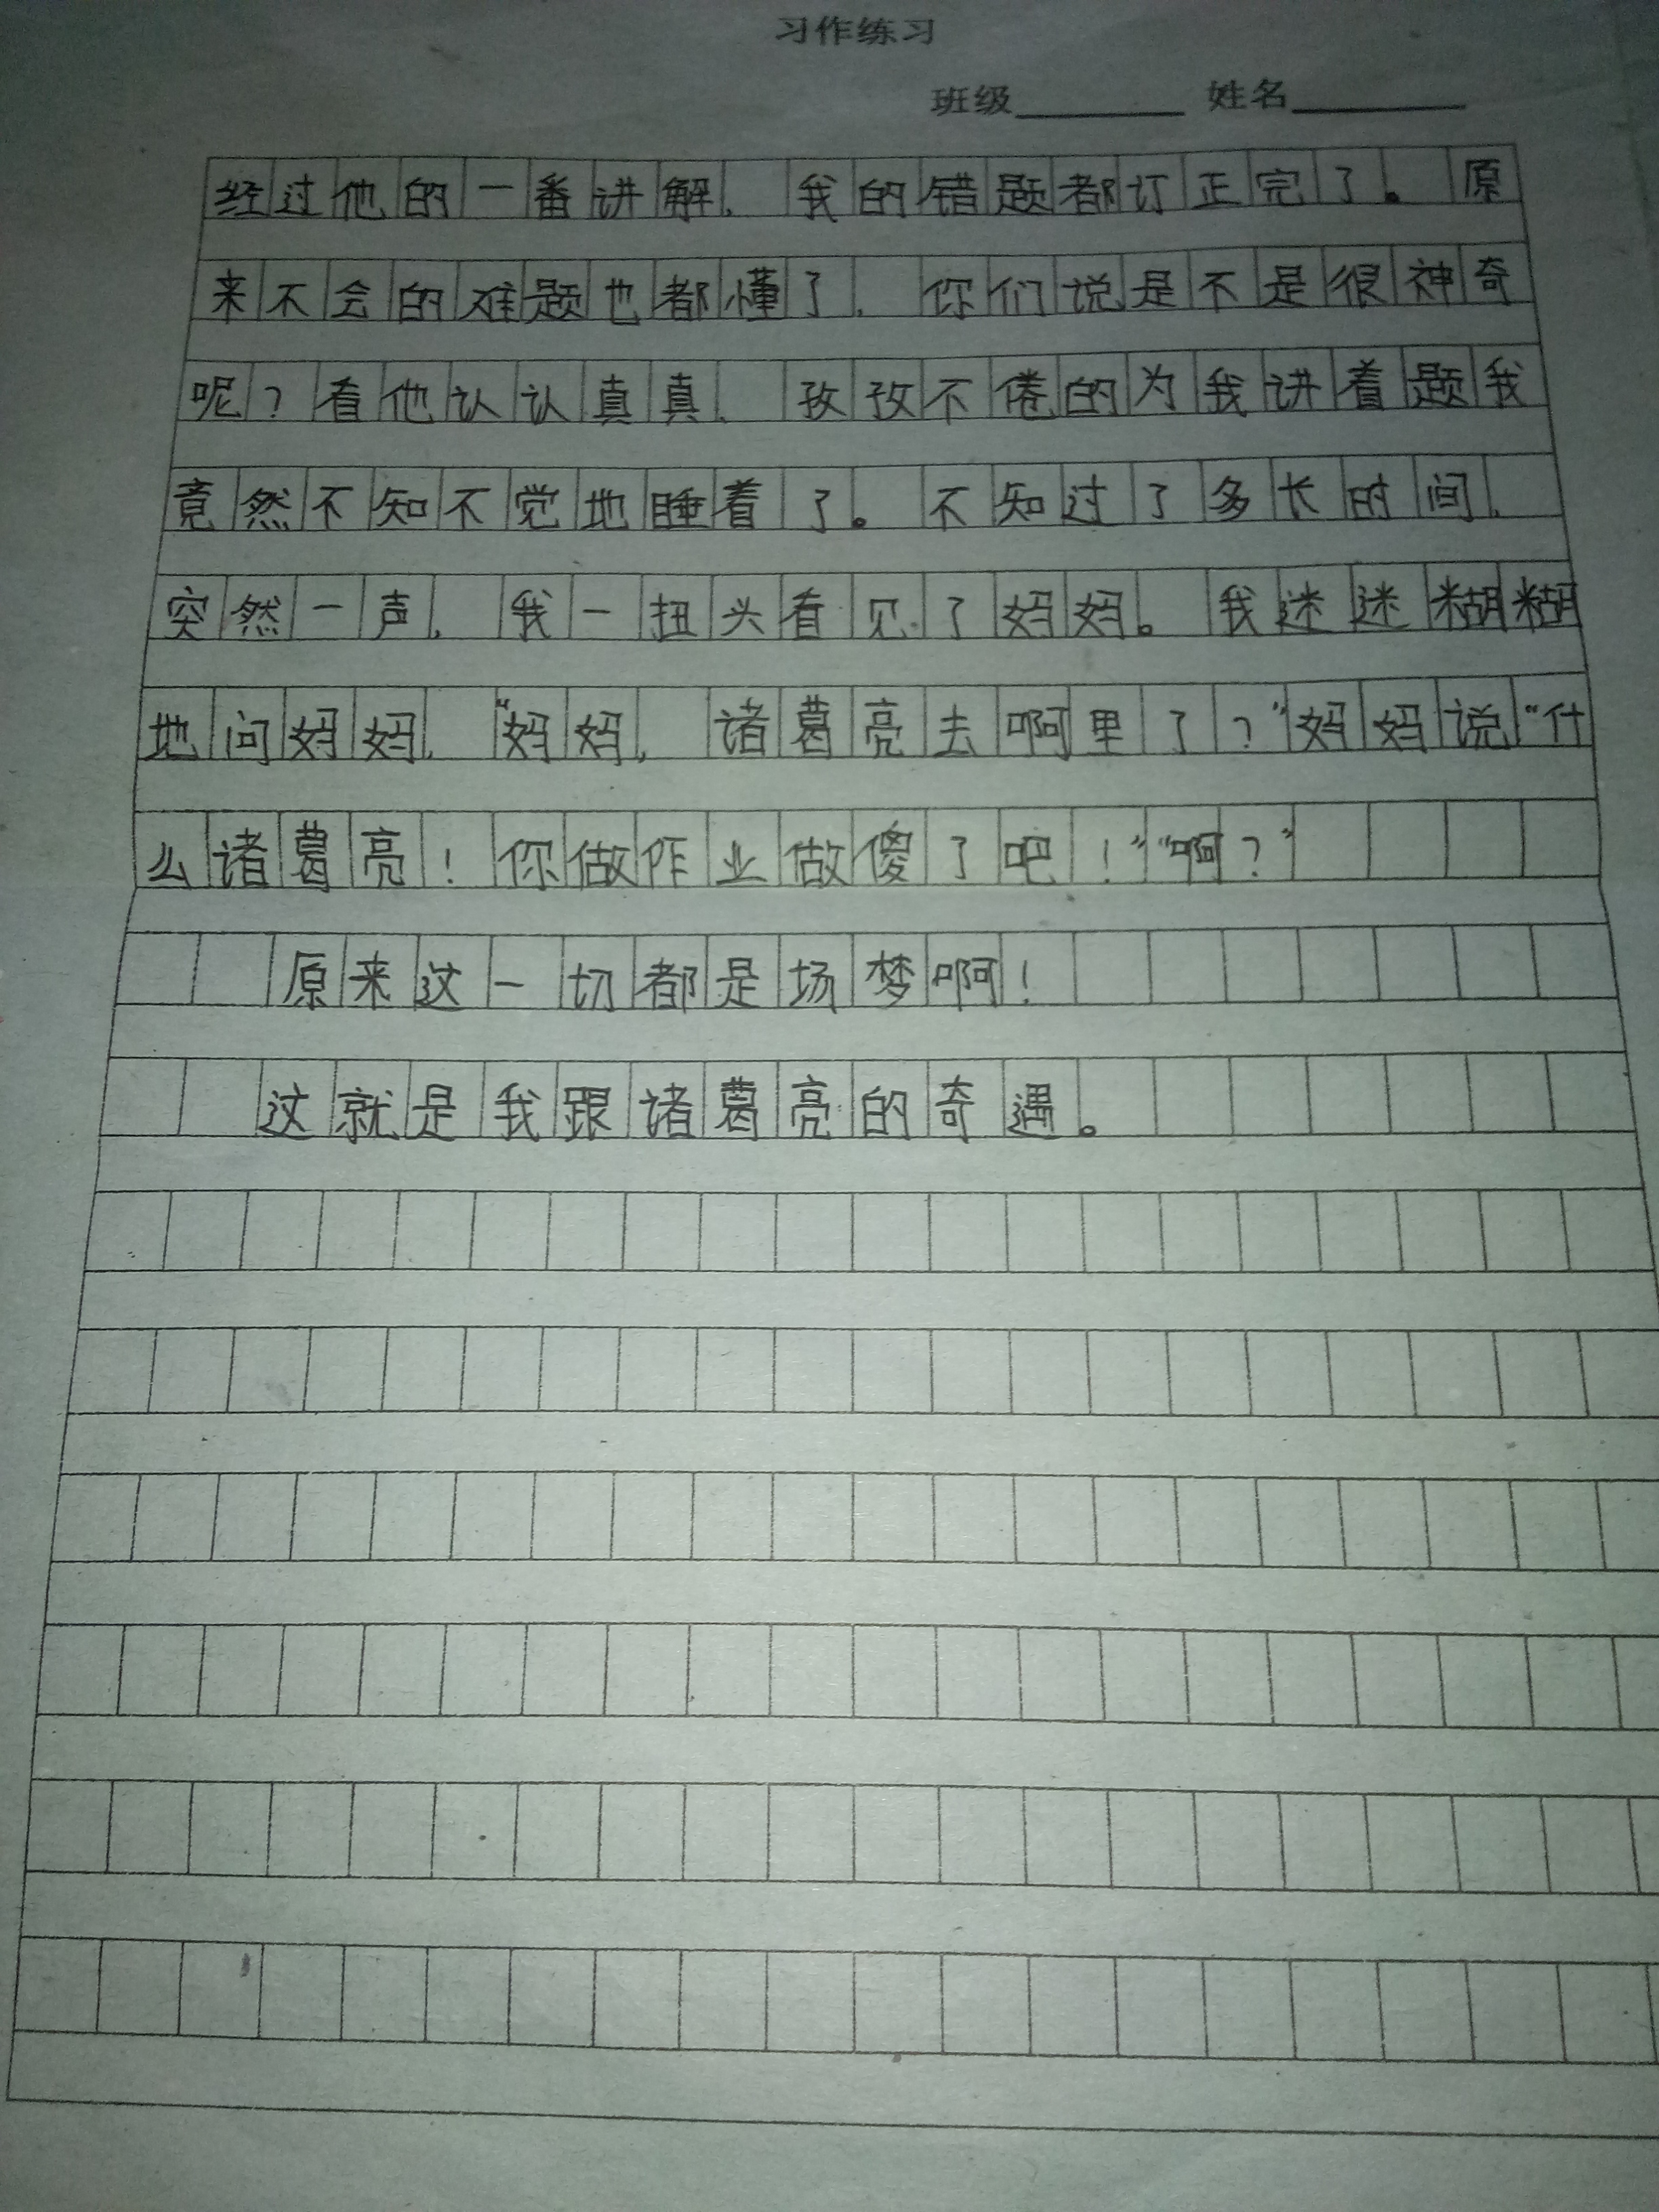 习作练习
班级 姓名
经过他的一番讲解，我的错题都订正完了。原
来不会的难题也都懂了，你们说是不是很神奇
呢？看他认认真真，孜孜不倦的为我讲着题我
竟然不知不觉地睡着了。不知过了多长时间，
突然一声，我一扭头看见了妈妈。我迷迷糊糊
地问妈妈，“妈妈，诸葛亮去啊里了？”妈妈说“什
么诸葛亮！你做作业做傻了吧！”“啊？”
原来这一切都是场梦啊！
这就是我跟诸葛亮的奇遇。